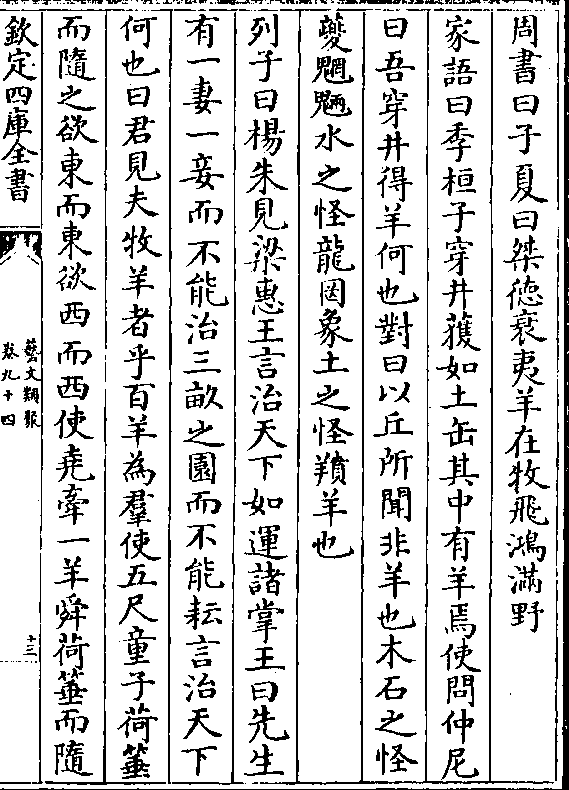 周書曰子夏曰桀徳衰夷羊在牧飛鴻滿野
家語曰季桓子穿井獲如土缶其中有羊焉使問仲尼
曰吾穿井得羊何也對曰以丘所聞非羊也木石之怪
夔魍魎水之怪龍罔象土之怪羵羊也
列子曰楊朱見梁惠王言治天下如運諸掌王曰先生
有一妻一妾而不能治三畝之園而不能耘言治天下
何也曰君見夫牧羊者乎百羊為羣使五尺童子荷菙
而隨之欲東而東欲西而西使堯牽一羊舜荷菙而隨
欽定四庫全書
藝文類聚
卷九十四
十三